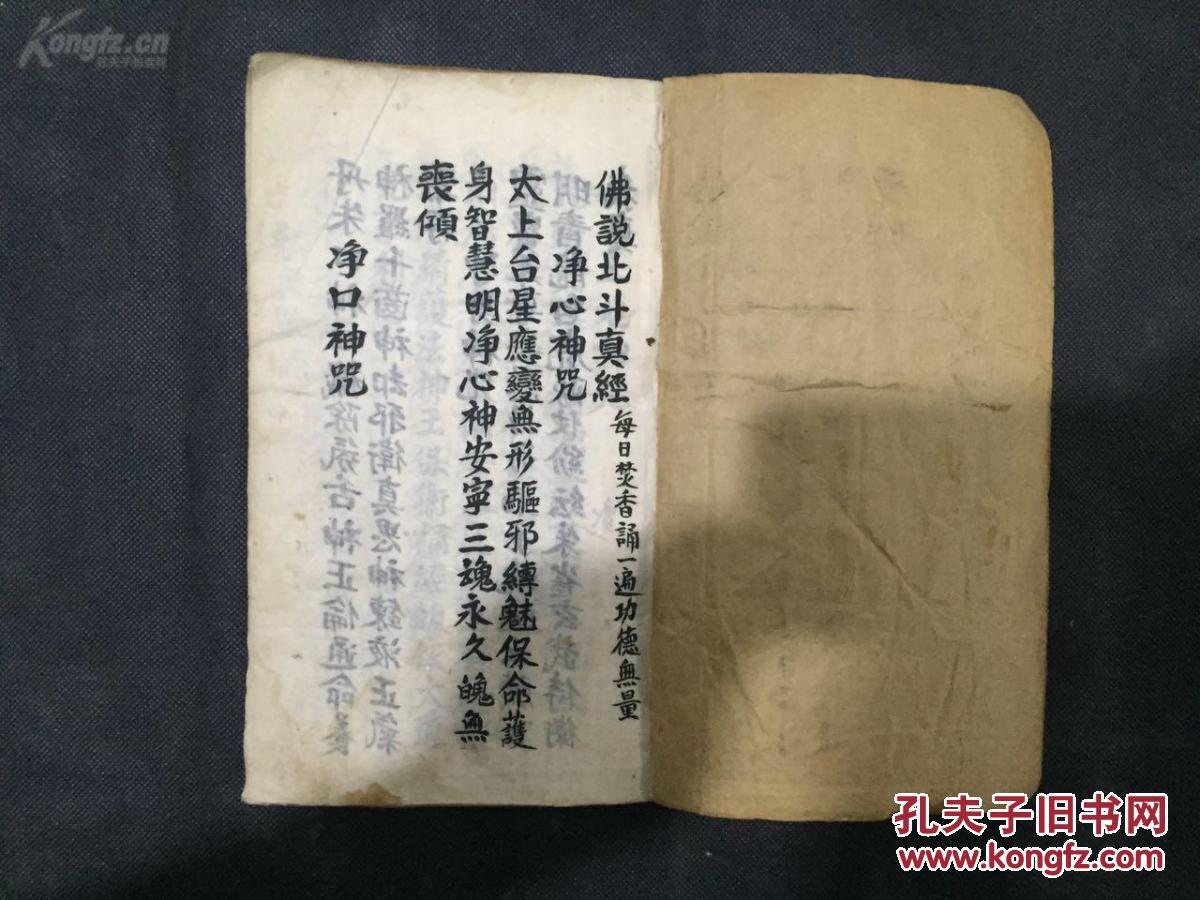 佛説北斗真經 每日焚香誦一遍功德無量
净心神咒
太上台星應變無形驅邪縛魅保命護
身智慧明净心神安宁三魂永久魄無
喪傾
净口神咒
Kongfz.cn
孔夫子旧书网
www.kongfz.com